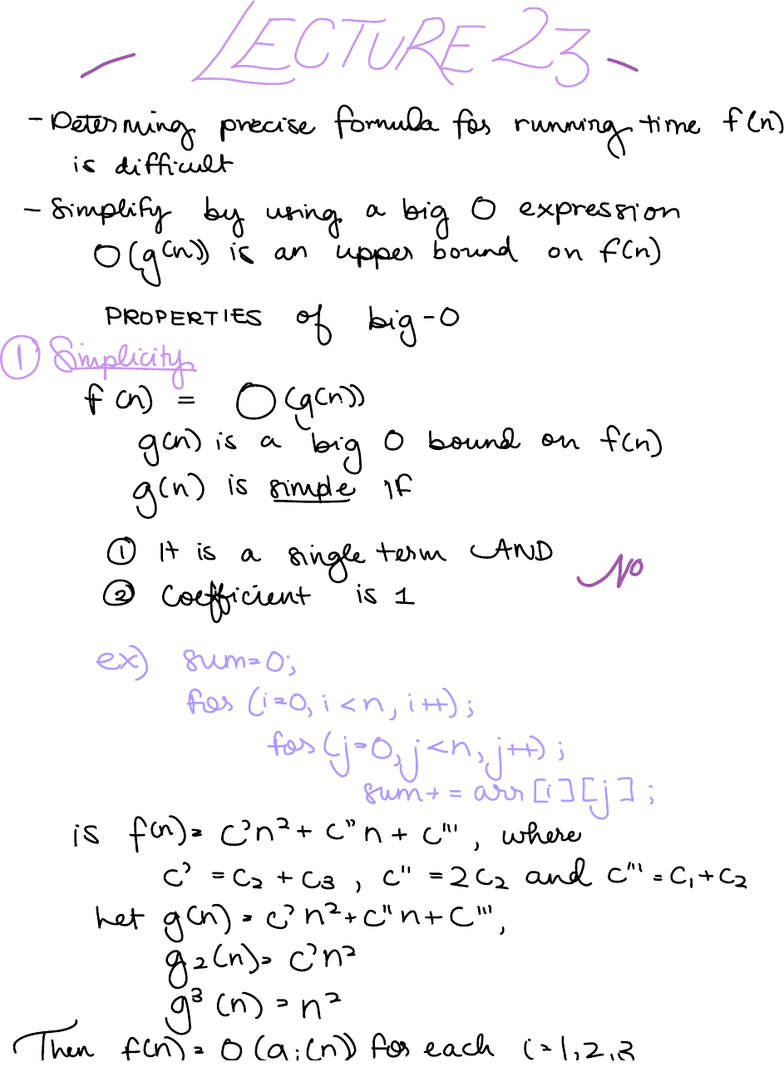 LECTURE 23
- Determing precise formula for running time f(n)
is difficult
- Simplify by using a big O expression
O(g(n)) is an upper bound on f(n)
PROPERTIES of big-O
① Simplicity
f(n) = O(g(n))
g(n) is a big O bound on f(n)
g(n) is simple if
① It is a single term AND
NO
② Coefficient is 1
ex) sum=0;
for (i=0, i<n, i++);
for (j=0, j<n, j++);
sum+= arr[i][j];
is f(n)= c'n²+ c"n + c"', where
c' = c₂ + c₃, c" = 2c₂ and c"' = c₁+c₂
Let g(n) = c'n²+c"n+c"',
g₂(n)= c'n²
g³(n) = n²
Then f(n)= O(gᵢ(n)) for each i=1,2,3